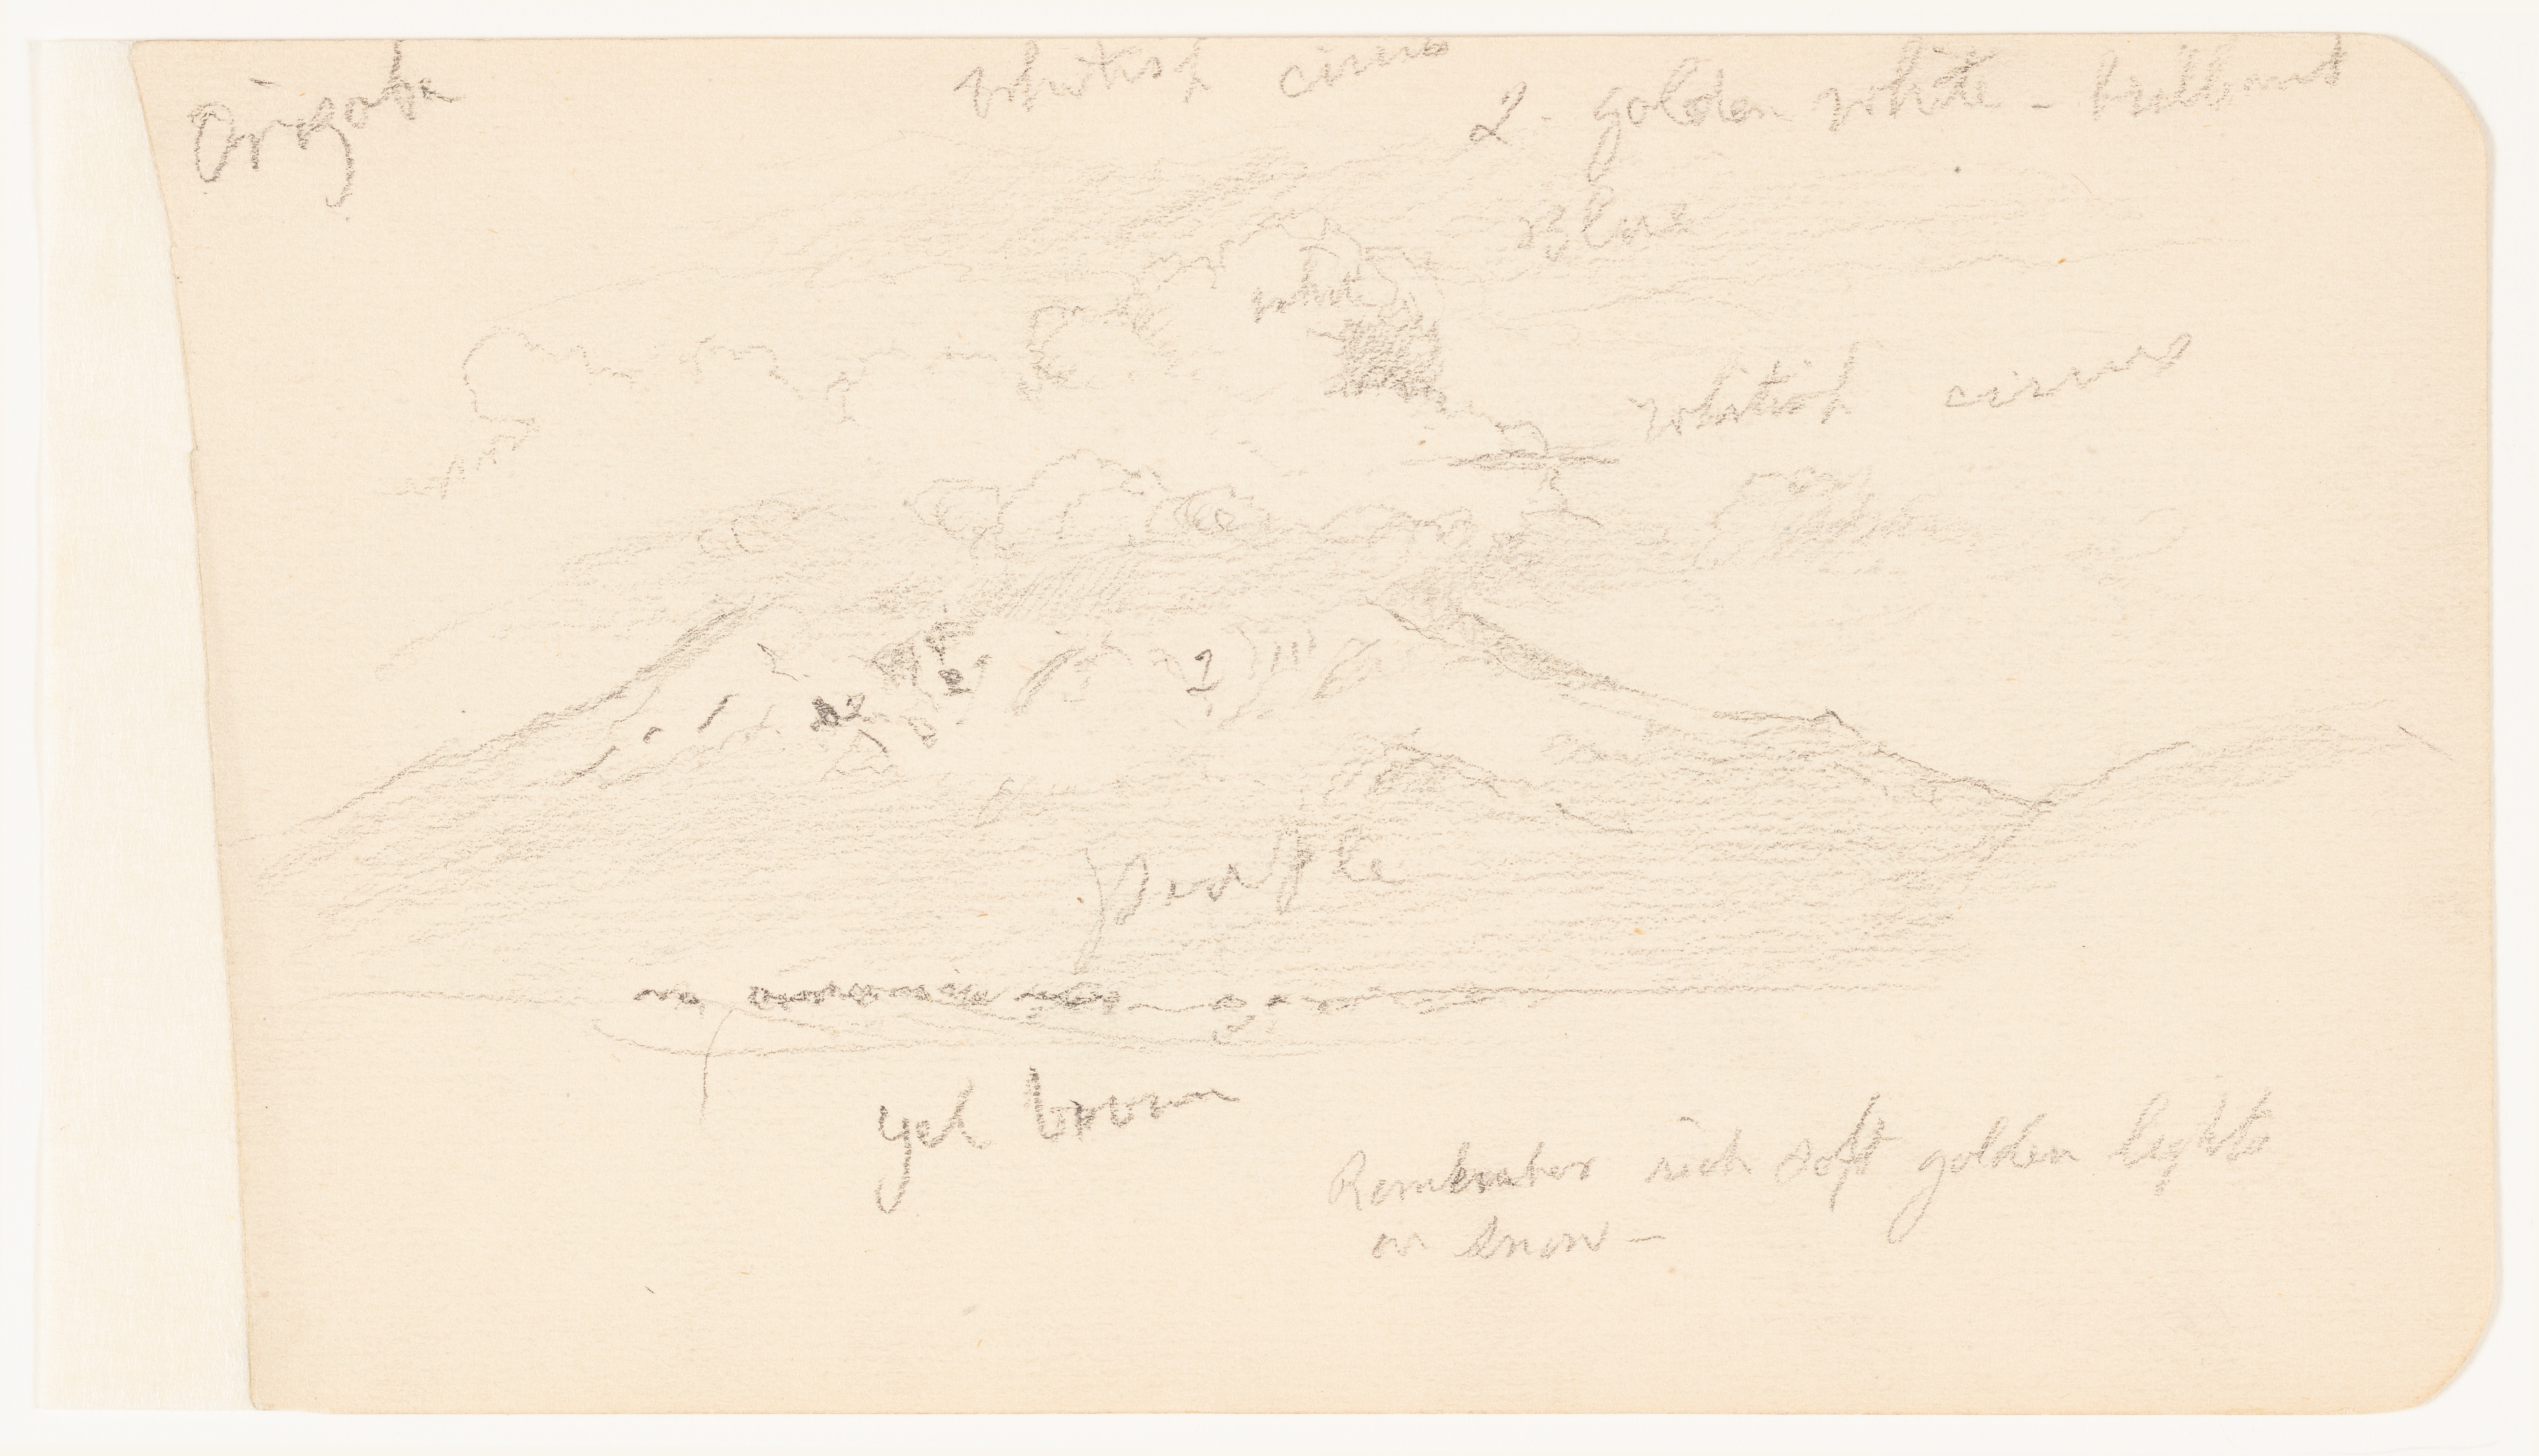 Orizaba
whitish cirrus
2. golden white - brilliant
blue
white
whitish cirrus
2
2
purple
yel brown
Remember rich soft golden lights
on snow -